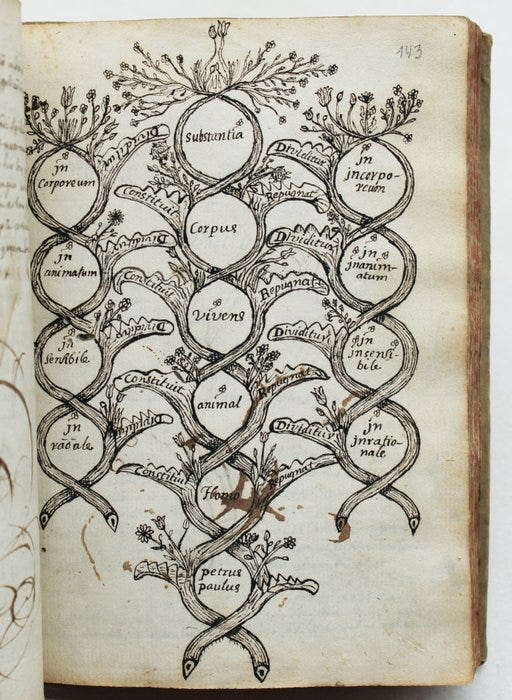 143
Substantia
Dividitur
Dividitur
jn
Corporeum
jn
jncorpo-
reum
Constituit
Repugnat
Corpus
Dividitur
Dividitur
jn
animatum
jn
jnanim-
atum
Constituit
Repugnat
Vivens
Dividitur
Dividitur
jn
sensibile
jn
jnsensi-
bile
Constituit
Repugnat
animal
Dividitur
Dividitur
jn
jn
jnratio-
nale
Constituit
Repugnat
Homo
petrus
paulus